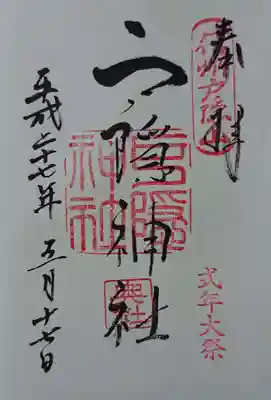 奉拝
信州戸隠山
戸隠神社
戸隠神社
奥社
式年大祭
平成二十七年 五月十七日